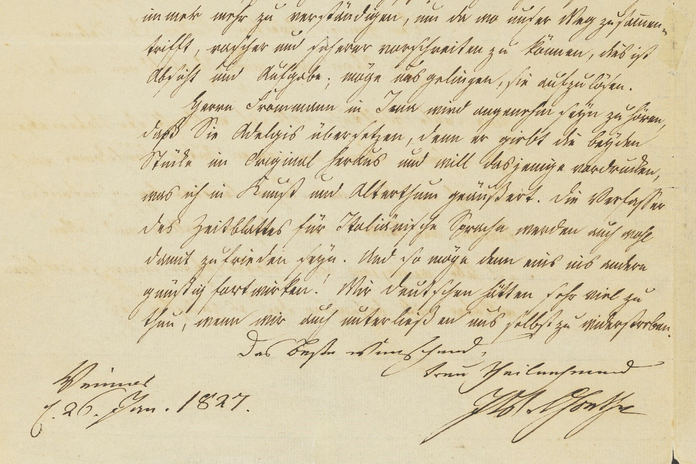 immer mehr zu verständigen, um da wo unser Weg zusammen-
trifft, rascher und sicherer vorschreiten zu können, dies ist
Absicht und Aufgabe; möge uns gelingen, sie aufzulösen.
Herrn Frommann in Jena wird angenehm seyn zu hören,
daß Sie Adelgis übersetzen, denn er giebt die beyden
Stücke im Original heraus und will dasjenige vordrucken,
was ich in Kunst und Alterthum geäußert. Die Verfasser
des Zeitblattes für Italiänische Sprache werden auch wohl
damit zufrieden seyn. Und so möge denn eins ins andere
günstig fortwirken! Wir Deutschen hätten sehr viel zu
thun, wenn wir auch unterließen uns selbst zu widerstreben.
Das Beste wünschend,
treu theilnehmend
Weimar
26. Jan. 1827.
Goethe